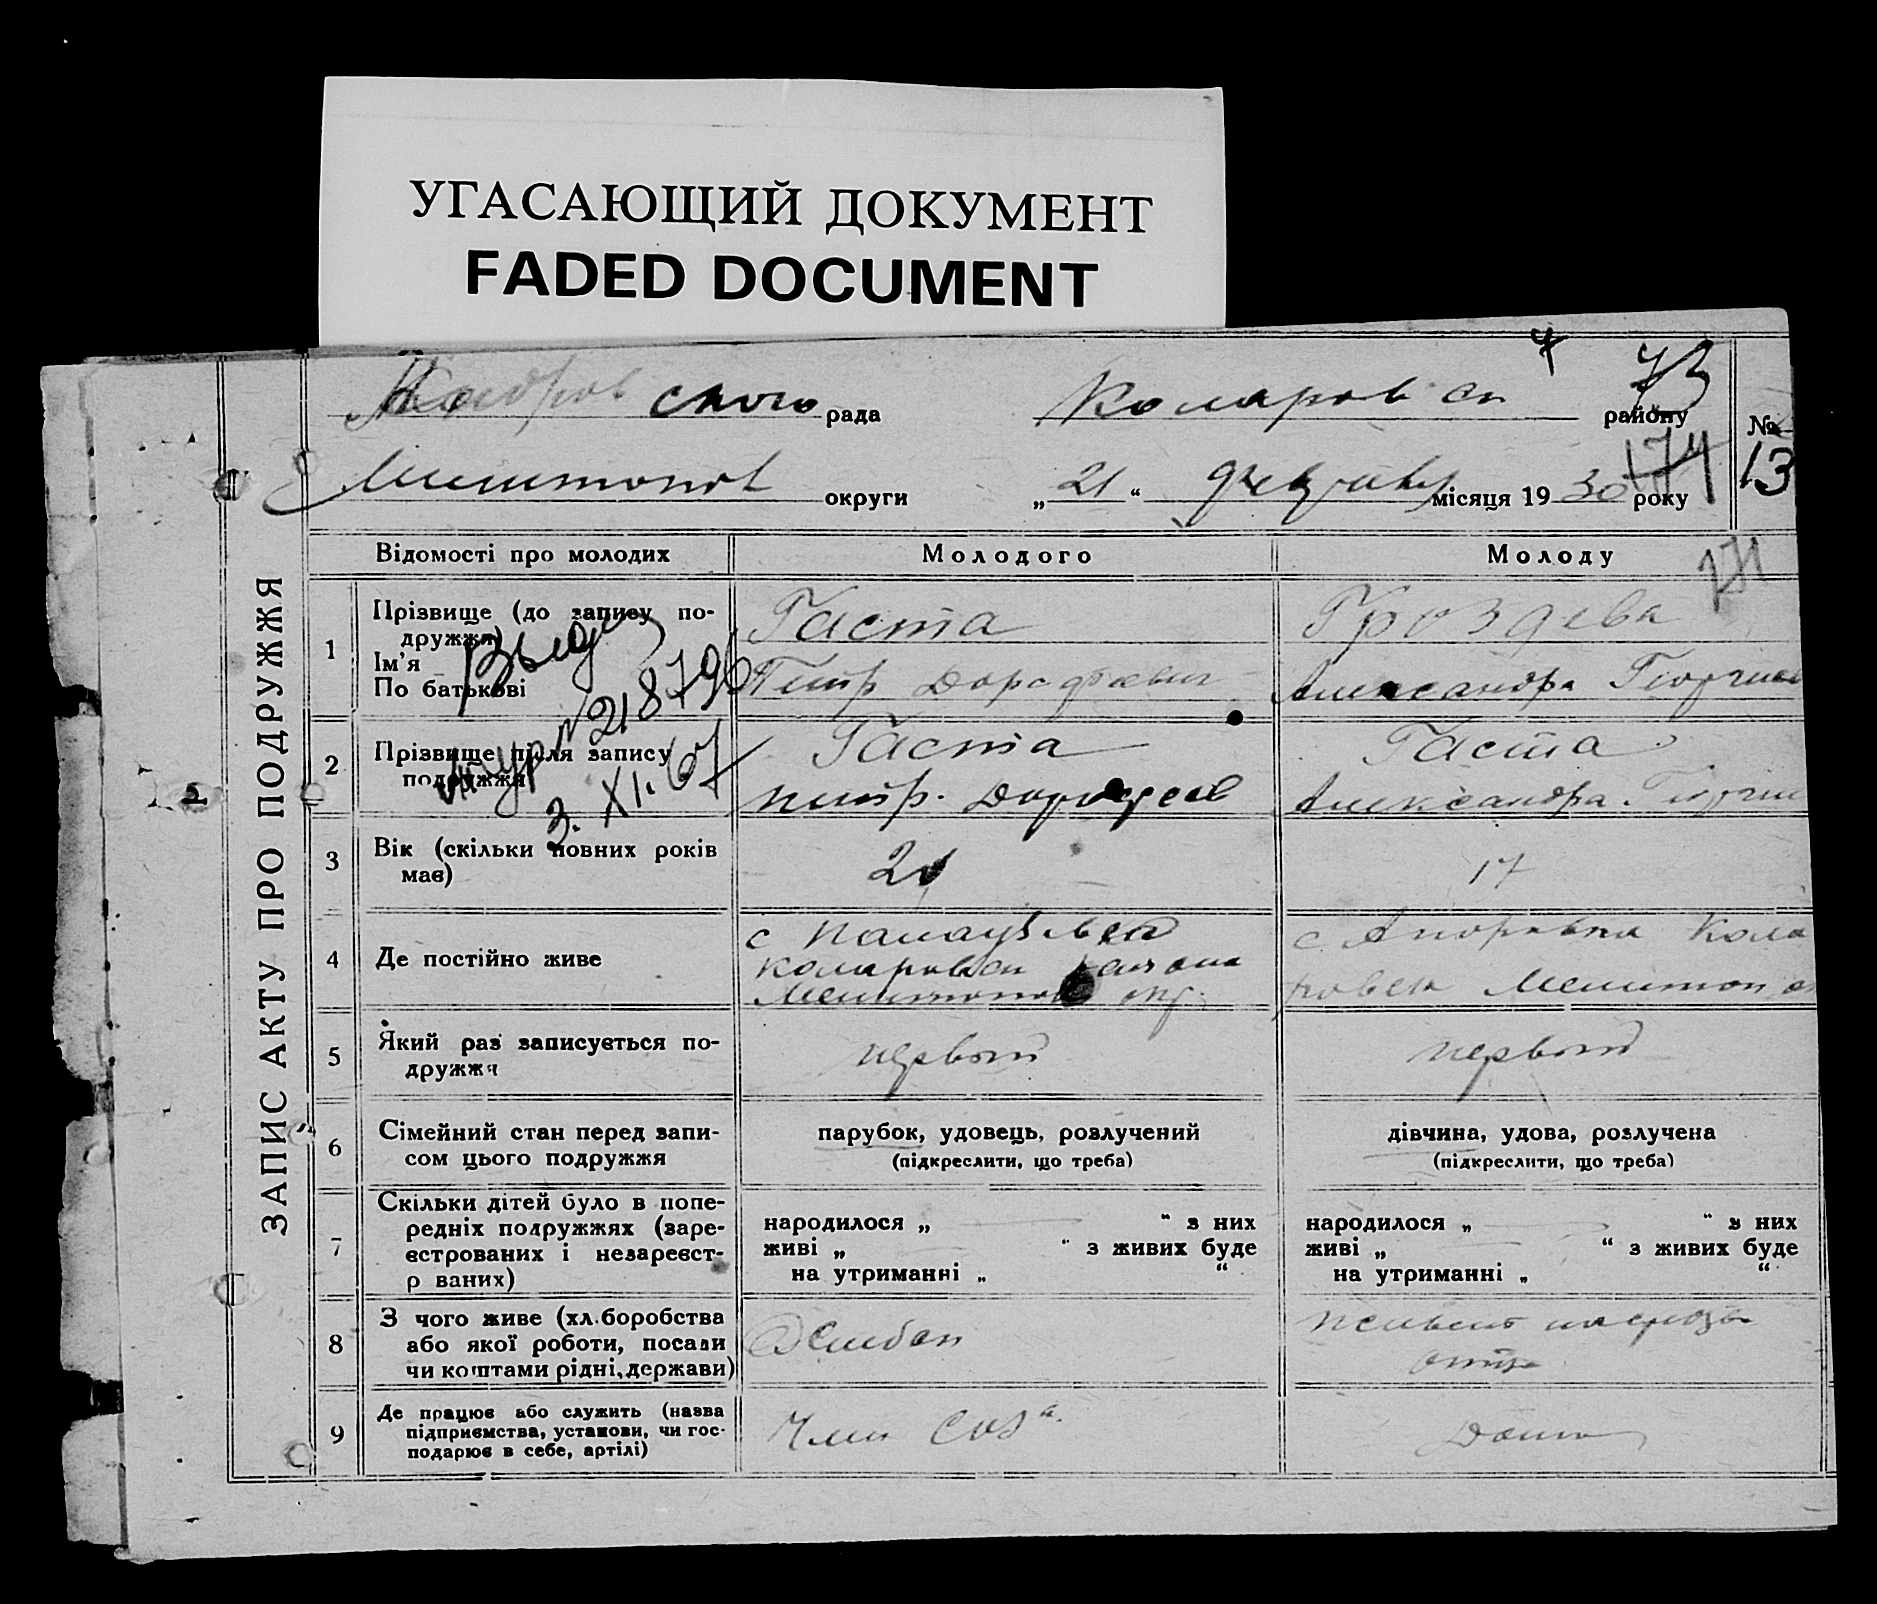 УГАСАЮЩИЙ ДОКУМЕНТ
FADED DOCUMENT
ского рада Коларовск району
73
174
№ 13
Мелитопол округи „ 21 “ месяця 19 30 року
ЗАПИС АКТУ ПРО ПОДРУЖЖЯ
Відомості про молодих Молодого Молоду
171
1 Прізвище (до запису по-
дружжя)
Ім'я
По батькові
Гаста
Петр Дорофеевич
Гроздева
Александра Георгиев
2 Прізвище після запису
подружжя
Гаста
Петр. Дорофеев
Гаста
Александра. Георгие
№ 218796
3. XI. 67
3 Вік (скільки повних років
має)
21
17
4 Де постійно живе
с
Коларовск района
Мелитопол окр.
с. Кола
ровск Мелитоп
5 Який раз записується по-
дружжя
первый
первый
6 Сімейний стан перед запи-
сом цього подружжя
парубок, удовець, розлучений
(підкреслити, що треба)
дівчина, удова, розлучена
(підкреслити, що треба)
7 Скільки дітей було в попе-
редніх подружжях (заре-
єстрованих і незареєст-
р ваних)
народилося „ “ з них
живі „ “ з живих буде
на утриманні „ “
народилося „ “ з них
живі „ “ з живих буде
на утриманні „ “
8 З чого живе (хл.боробства
або якої роботи, посади
чи коштами рідні, держави)
отца
9 Де працює або служить (назва
підприємства, установи, чи гос-
подарює в себе, артілі)
Член Соз а.
Дома